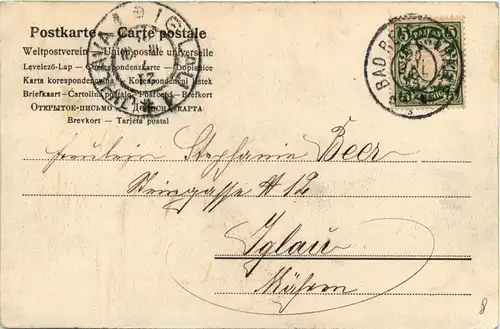 Postkarte — Carte postale
Weltpostverein — Union postale universelle
Levelező-Lap — Correspondenzkarte — Dopisnice
Karta korespondencyjna — Korespondenční lístek
Briefkaart — Cartolina postale — Postcard — Brefkort
Открытое-письмо — Дописна карта
Brevkort — Tarjeta postal
IGLAU
JIHLAVA
BAD
5 5
Fräulein Stephanie Beer
Steingasse # 12
Iglau
Mähren
8